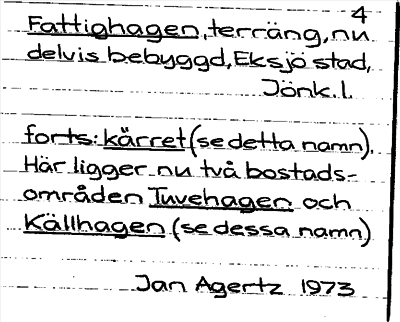 4
Fattighagen, terräng, nu
delvis bebyggd, Eksjö stad,
Jönk. l.
forts: kärret (se detta namn).
Här ligger nu två bostads-
områden Tuvehagen och
Källhagen (se dessa namn)
Jan Agertz 1973